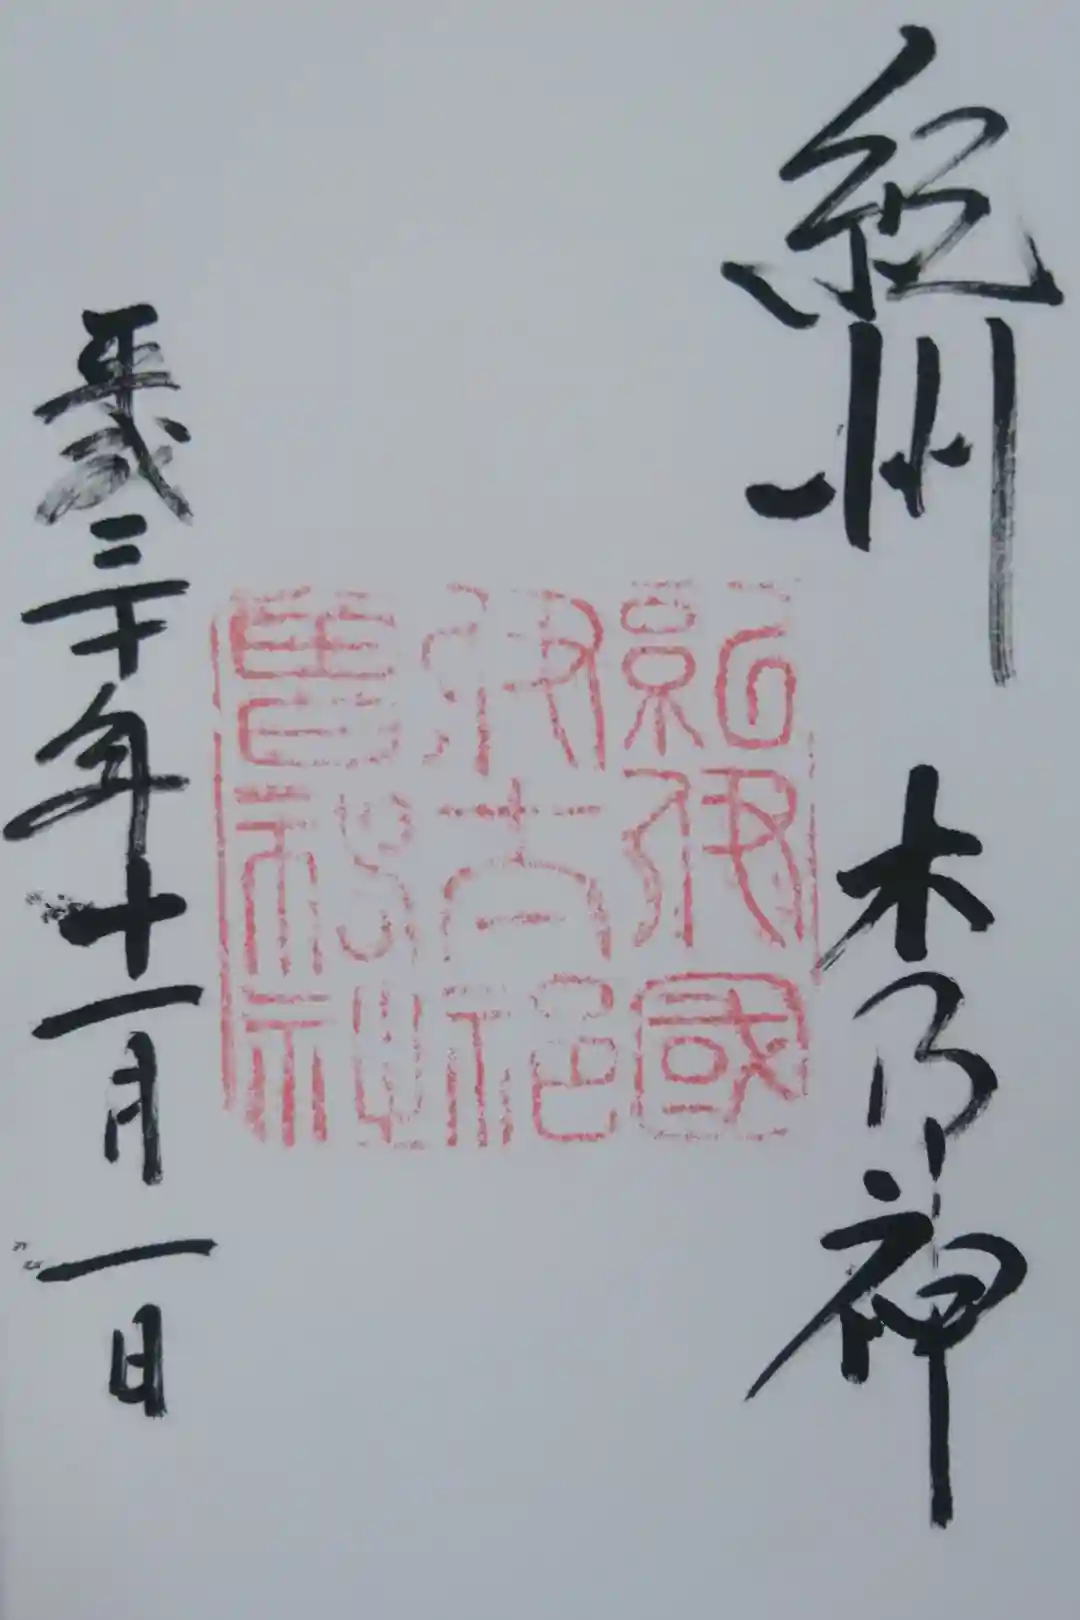 紀州 木乃神
紀伊國
伊太祁
曾神社
平成三十年十一月一日